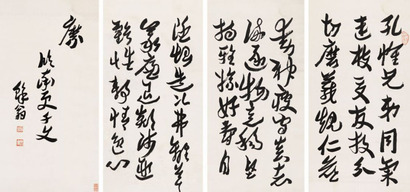 孔懷兄弟同氣
連枝交友投分
切磨箴規仁慈
動神疲守真志
滿逐物意移堅
持雅操好爵自
隱惻造次弗離節
義廉退顛沛匪
虧性靜情逸心
縻
千文
翁